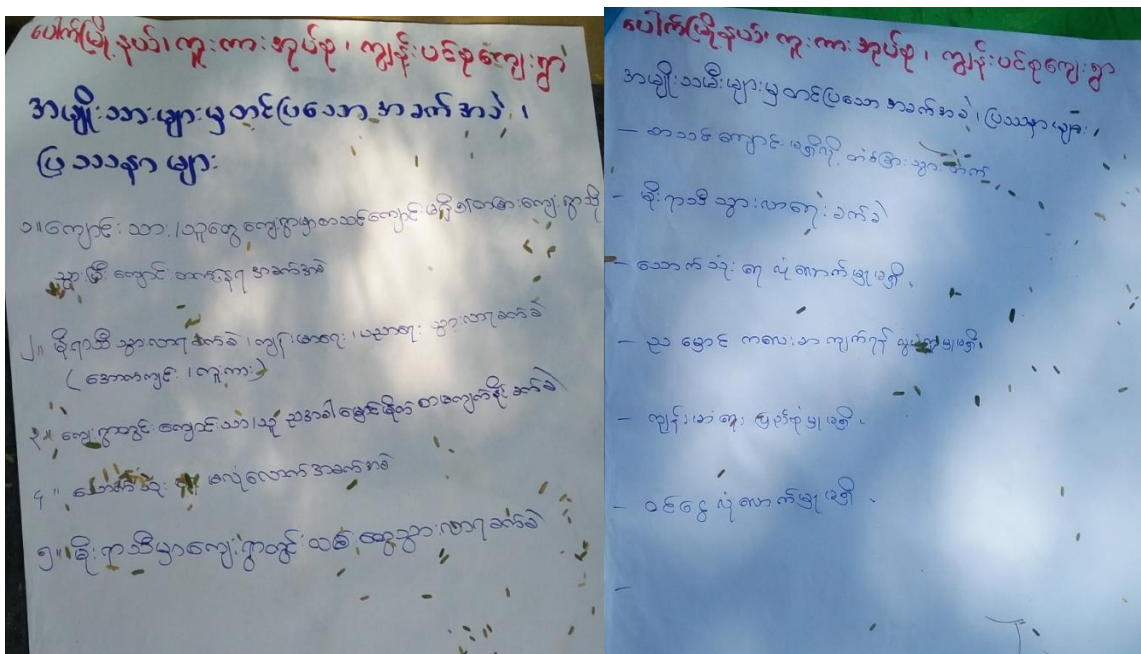 ပေါက်မြို့နယ်၊ ကူးကားအုပ်စု၊ ကျွန်းပင်စုကျေးရွာ
အမျိုးသားများမှတင်ပြသော အခက်အခဲ ၊
ပြဿနာများ
၁။ ကျောင်းသား/သူတွေ ကျေးရွာမှာစာသင်ကျောင်းမရှိ၍ တခြားကျေးရွာသို့
သွားပြီး ကျောင်းတက်နေရ အခက်အခဲ
၂။ မိုးရာသီ သွားလာရခက်ခဲ ၊ ကျန်းမာရေး ၊ ပညာရေး သွားလာရခက်ခဲ
၃။ ကျေးရွာတွင်း ကျောင်းသား/သူ ညအခါ မှောင်မိုက် စာမကျက်နိုင် ခက်ခဲ
၄။ သောက်သုံးရေ မလုံလောက် အခက်အခဲ
၅။ မိုးရာသီမှာ ကျေးရွာတွင်း သွားလာရခက်ခဲ
ပေါက်မြို့နယ်၊ ကူးကားအုပ်စု ၊ ကျွန်းပင်စုကျေးရွာ
အမျိုးသမီးများမှတင်ပြသော အခက်အခဲ ၊ ပြဿနာများ ၊
– စာသင်ကျောင်းမရှိလို့ တစ်ခြားသွားတက်
– မိုးရာသီ သွားလာရေးခက်ခဲ
– သောက်သုံးရေ လုံလောက်မှုမရှိ ၊
– ည မှောင် ကလေးစာကျက်ရန် မှုမရှိ ၊
– ကျန်းမာရေး ပြည့်စုံမှုမရှိ ၊
– ဝင်ငွေ လုံလောက်မှုမရှိ ၊
–